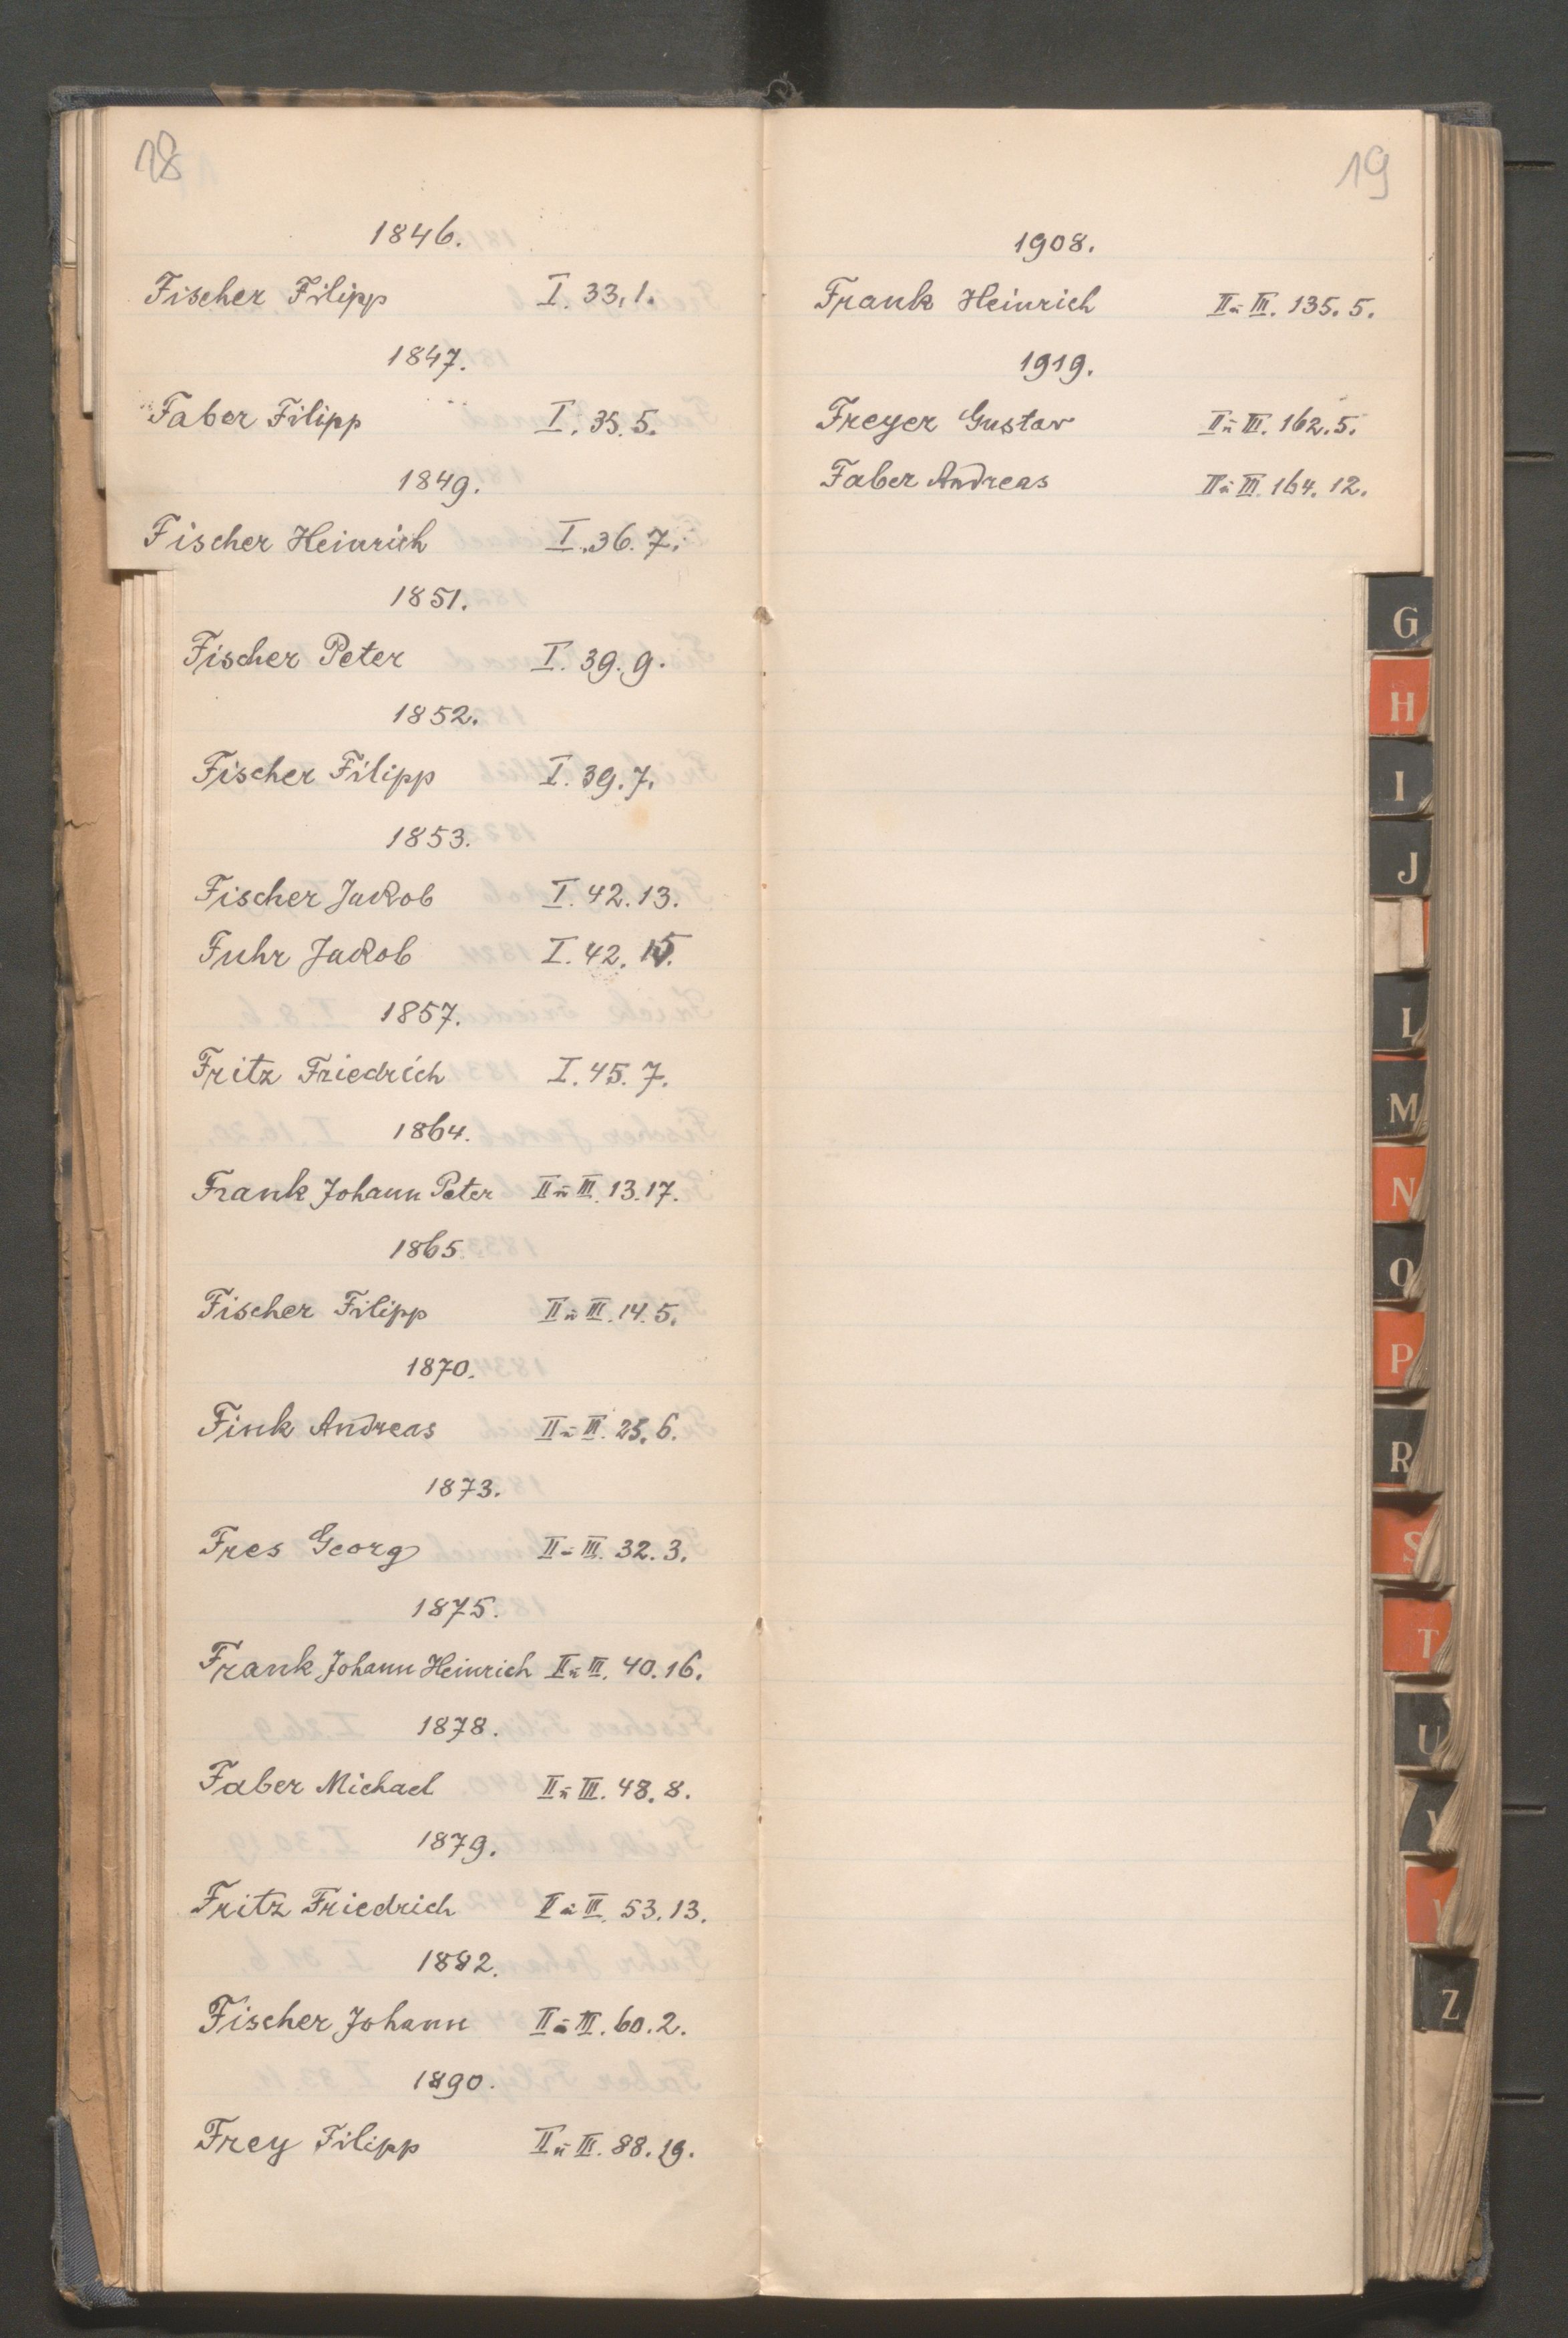 18
1846.
Fischer Filipp I. 33.1.
1847.
Faber Filipp I. 35.5.
1849.
Fischer Heinrich I. 36.7.
1851.
Fischer Peter I. 39.9.
1852.
Fischer Filipp I. 39.7.
1853.
Fischer Jakob I. 42.13.
Fuhr Jakob I. 42. 15.
1857.
Fritz Friedrich I. 45.7.
1864.
Frank Johann Peter II ü III. 13.17.
1865.
Fischer Filipp II ü III. 14.5.
1870.
Fink Andreas II ü III. 25.6.
1873.
Fres Georg II ü III. 32.3.
1875.
Frank Johann Heinrich II ü III. 40.16.
1878.
Faber Michael II ü III. 48.8.
1879.
Fritz Friedrich II ü III. 53.13.
1882.
Fischer Johann II ü III. 60.2.
1890.
Frey Filipp II ü III. 88.19.
19
1908.
Frank Heinrich II ü III. 135.5.
1919.
Freyer Gustav II ü III. 162.5.
Faber Andreas II ü III. 164.12.
G
H
I
J
L
M
N
O
P
R
S
T
U
Z